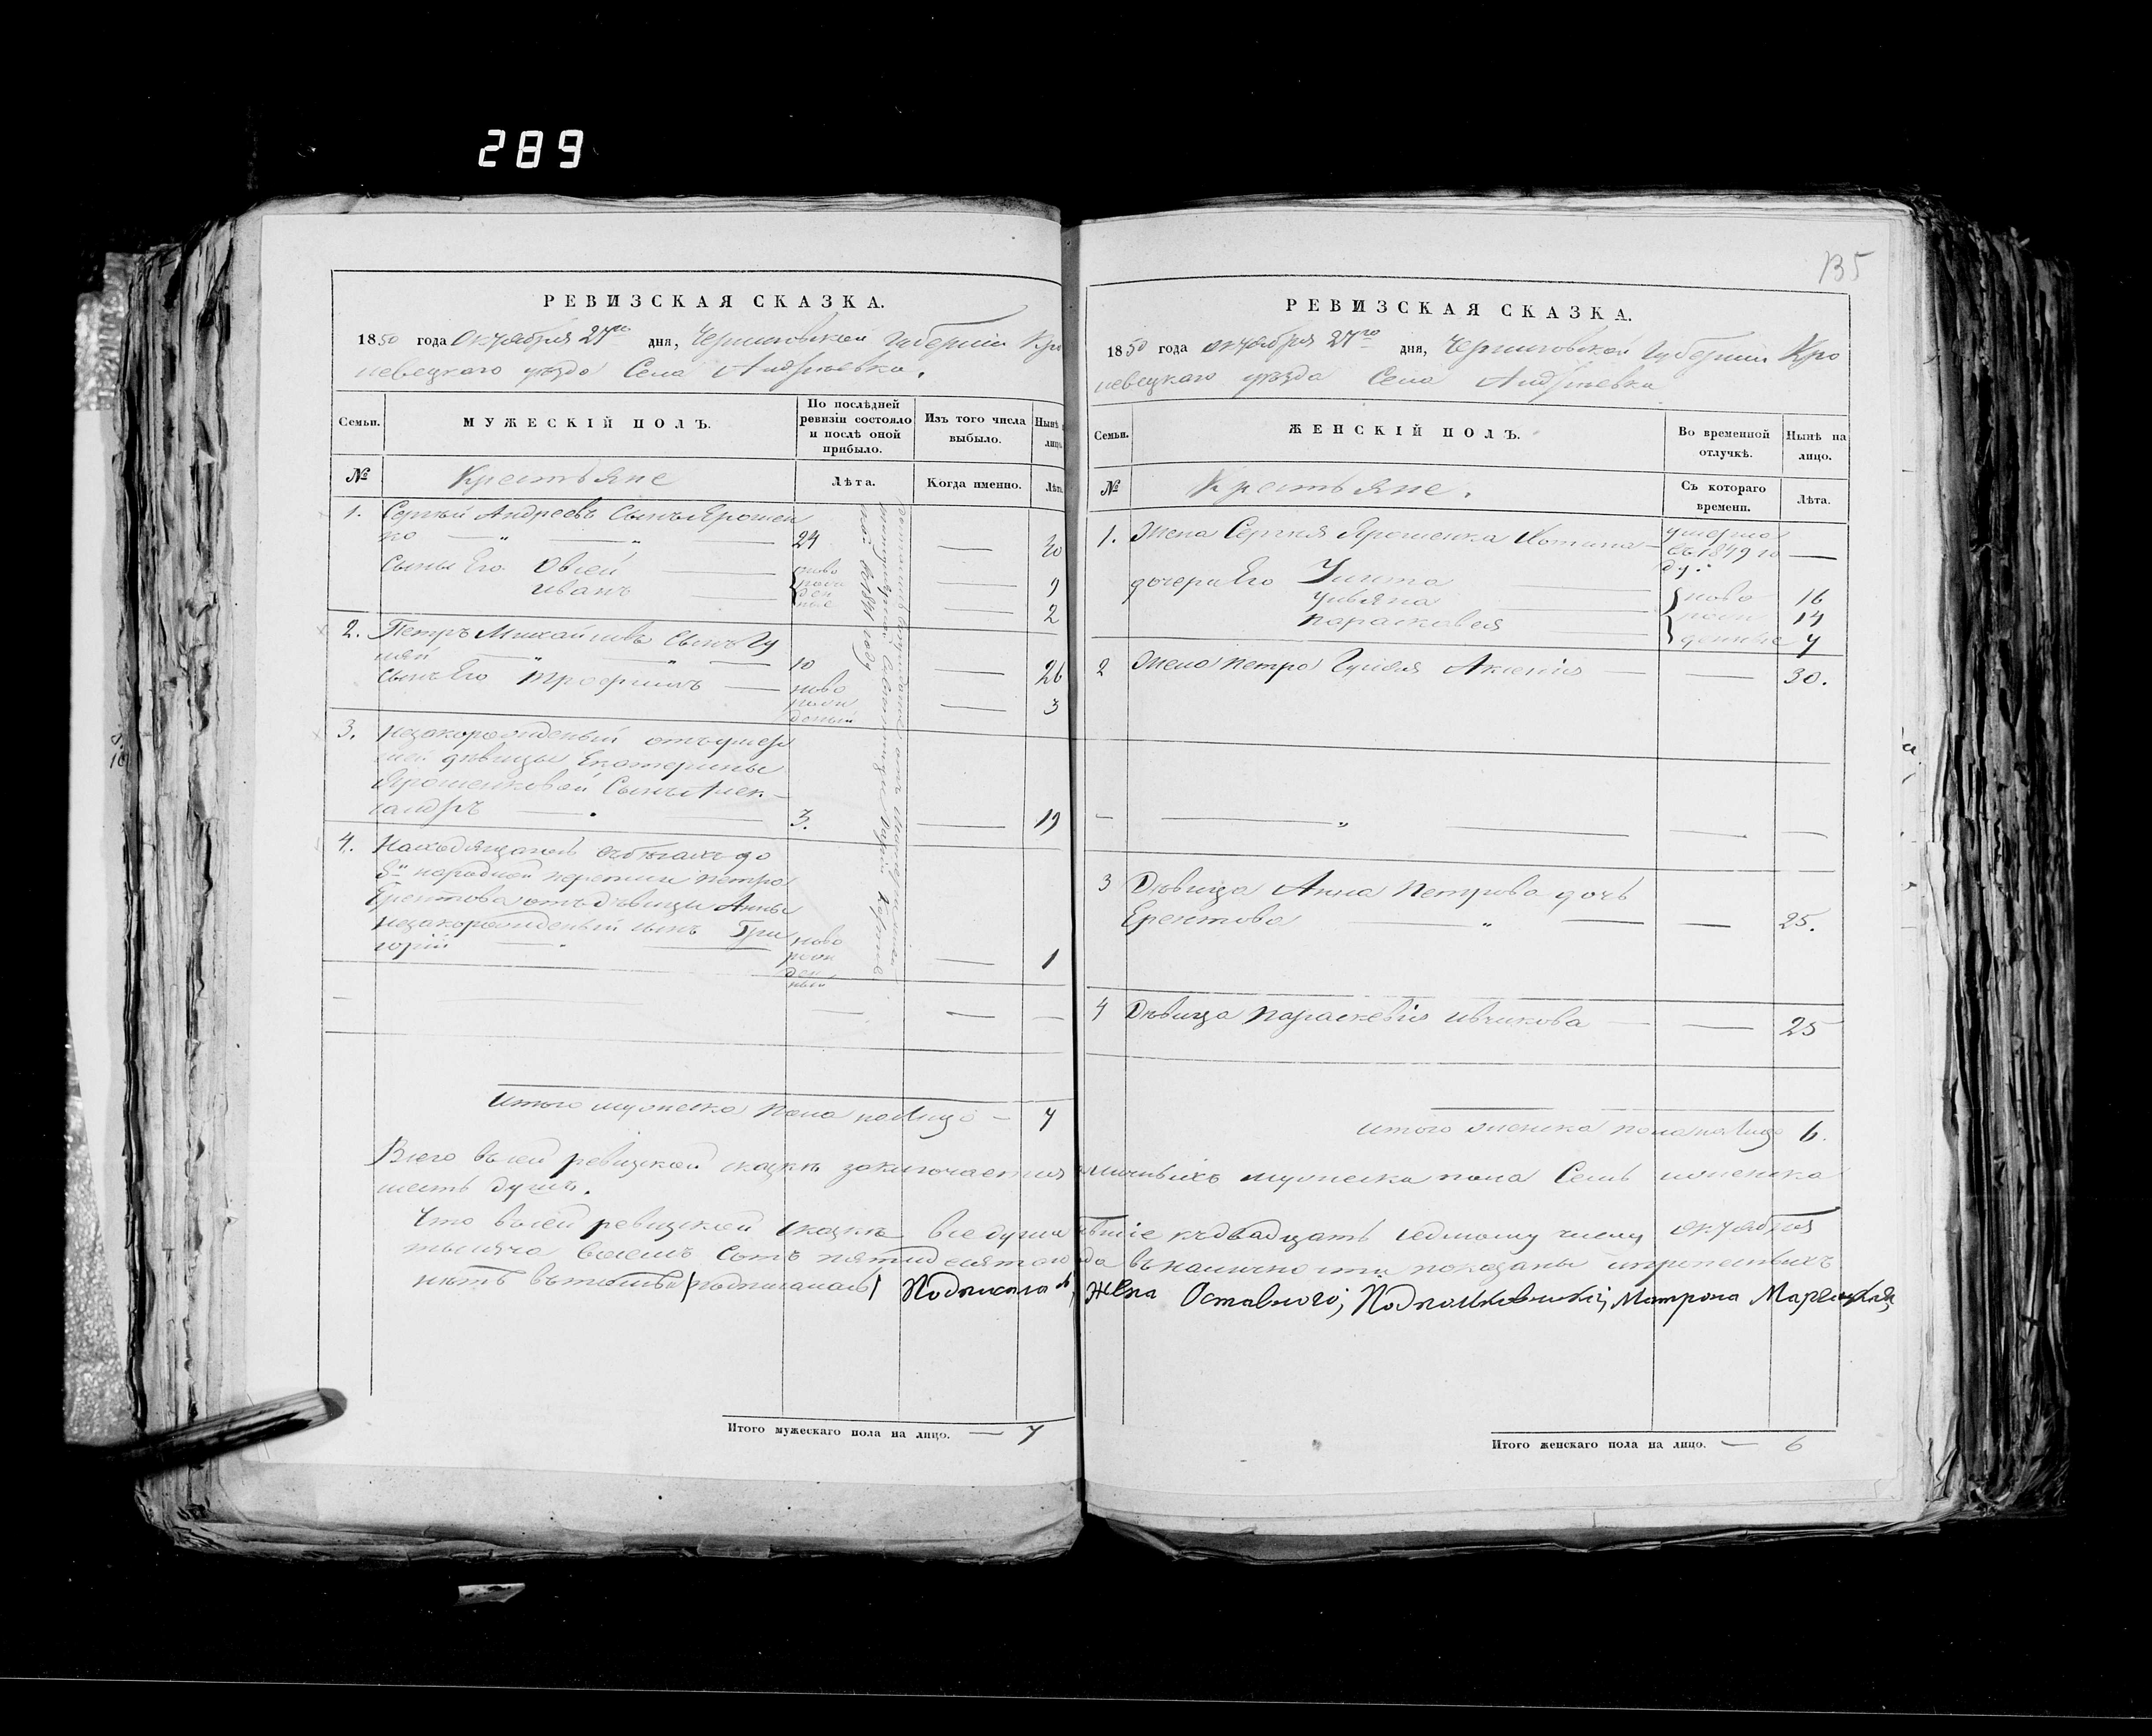 289
135
РЕВИЗСКАЯ СКАЗКА.
1850 года Октября 27го дня, Черниговской Губерніи Кро
левецкаго уѣзда Села Андрѣевки.
Семьи.
МУЖЕСКІЙ ПОЛЪ.
По послѣдней ревизіи состояло и послѣ оной прибыло.
Изъ того числа выбыло.
Нынѣ
лицо
№
Крестьяне
Лѣта.
Когда именно.
Лѣта
1. Сергѣй Андреевъ Сынъ Ярошен
ко — „ — „ — 24 — 40
Сыны Его Овсей — ново — 9
Иванъ — рож ден ные — 2
2. Петръ Михайловъ Сынъ Гу
ляй — „ — „ — 10 — 26
Сынъ Его Трофимъ — ново рож деный — 3
3. Незакорожденый отъ умер
шей дѣвицы Екатерины
Ярошенковой Сынъ Алек-
сандръ — 3. — 19
4. Находящагось въ бѣгахъ до
8й народной переписи Петра
отъ дѣвицы Анны
незакорожденый сынъ Гри
горій — „ — ново рож ден ный — 1
Итого мужеска пола налицо — 7
РЕВИЗСКАЯ СКАЗКА.
1850 года октября 27го дня, Черниговской Губерніи Кро
левецкаго уѣзда Села Андрѣевки
Семьи.
ЖЕНСКІЙ ПОЛЪ.
Во временной отлучкѣ.
Нынѣ на лицо.
№
Крестьяне.
Съ котораго времени.
Лѣта.
1. Жена Сергѣя Ярошенка — умерла въ 1849 го ду. —
дочери Его — ново 16
Ульяна — рож 14
Парасковея — денные 7
2 Жена Петра Гуляя Аксенія — — 30.
3 Дѣвица Анна Петрова дочь
— „ — — 25.
4 Дѣвица Параскевія — — 25
Итого женска пола налицо 6.
Всего в сей ревизской сказкѣ заключается наличныхъ мужеска пола Семь и женска
шесть душъ.
Что в сей ревизской сказкѣ все души къ двадцать седмому числу октября
тысяча восемъ сотъ пятидесятого года въ наличности показаны и прописныхъ
нѣтъ въ томъ и подписалась Подписалась, Жена Отставного, Подполковника, Матрона
Итого мужескаго пола на лицо. — 7
Итого женскаго пола на лицо. — 6